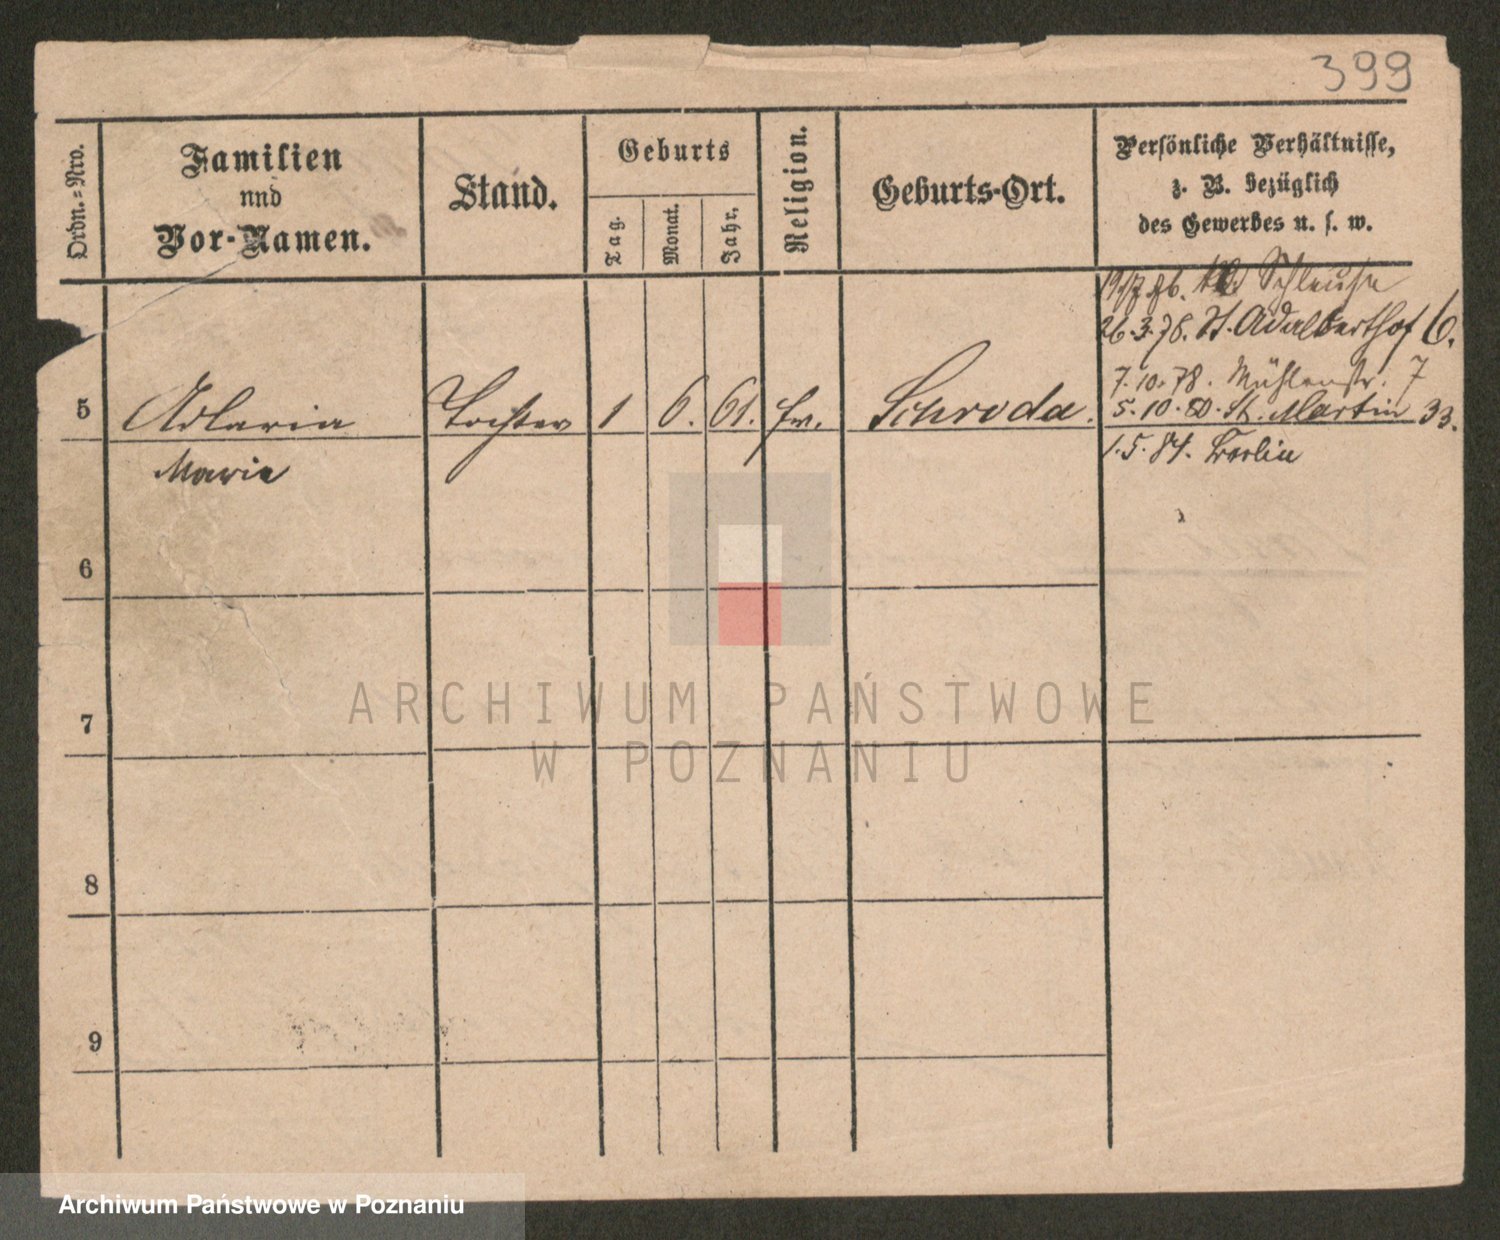 399
Ordn.=Nro.
Familien
nnd
Vor-Namen.
Stand.
Geburts
Tag.
Monat.
Jahr.
Religion.
Geburts-Ort.
Persönliche Verhältnisse,
z. B. bezüglich
des Gewerbes u. s. w.
Schleuse
26.3.78. St. Adalberthof 6.
7.10.78. Mühlenstr. 7
5 Tochter 1 6. 61. Schroda. 5.10.80. St. Martin 33.
Marie 1.5.84. Berlin
6
7
8
9
ARCHIWUM PAŃSTWOWE
W POZNANIU
Archiwum Państwowe w Poznaniu